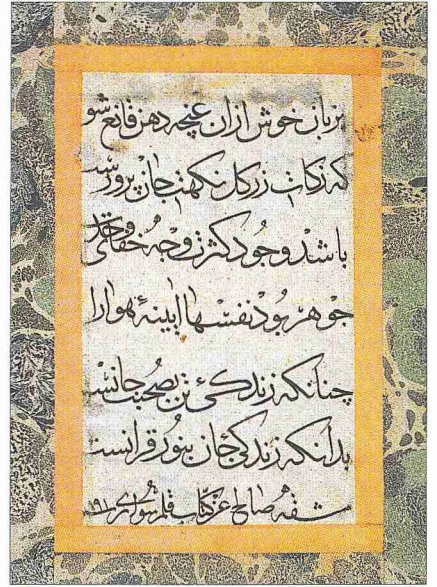 بزبان خوش ازان غنچه دهن قانع شو
که زکات زر کل نکهت جان پرور
باشد وجود کثرت وجه
جوهر بود نفسها ایینهٔ هوارا
چنانکه زندکئ تن بصحبت جانست
بدانکه زندکی جان بنور قرانست
مشقه صالح